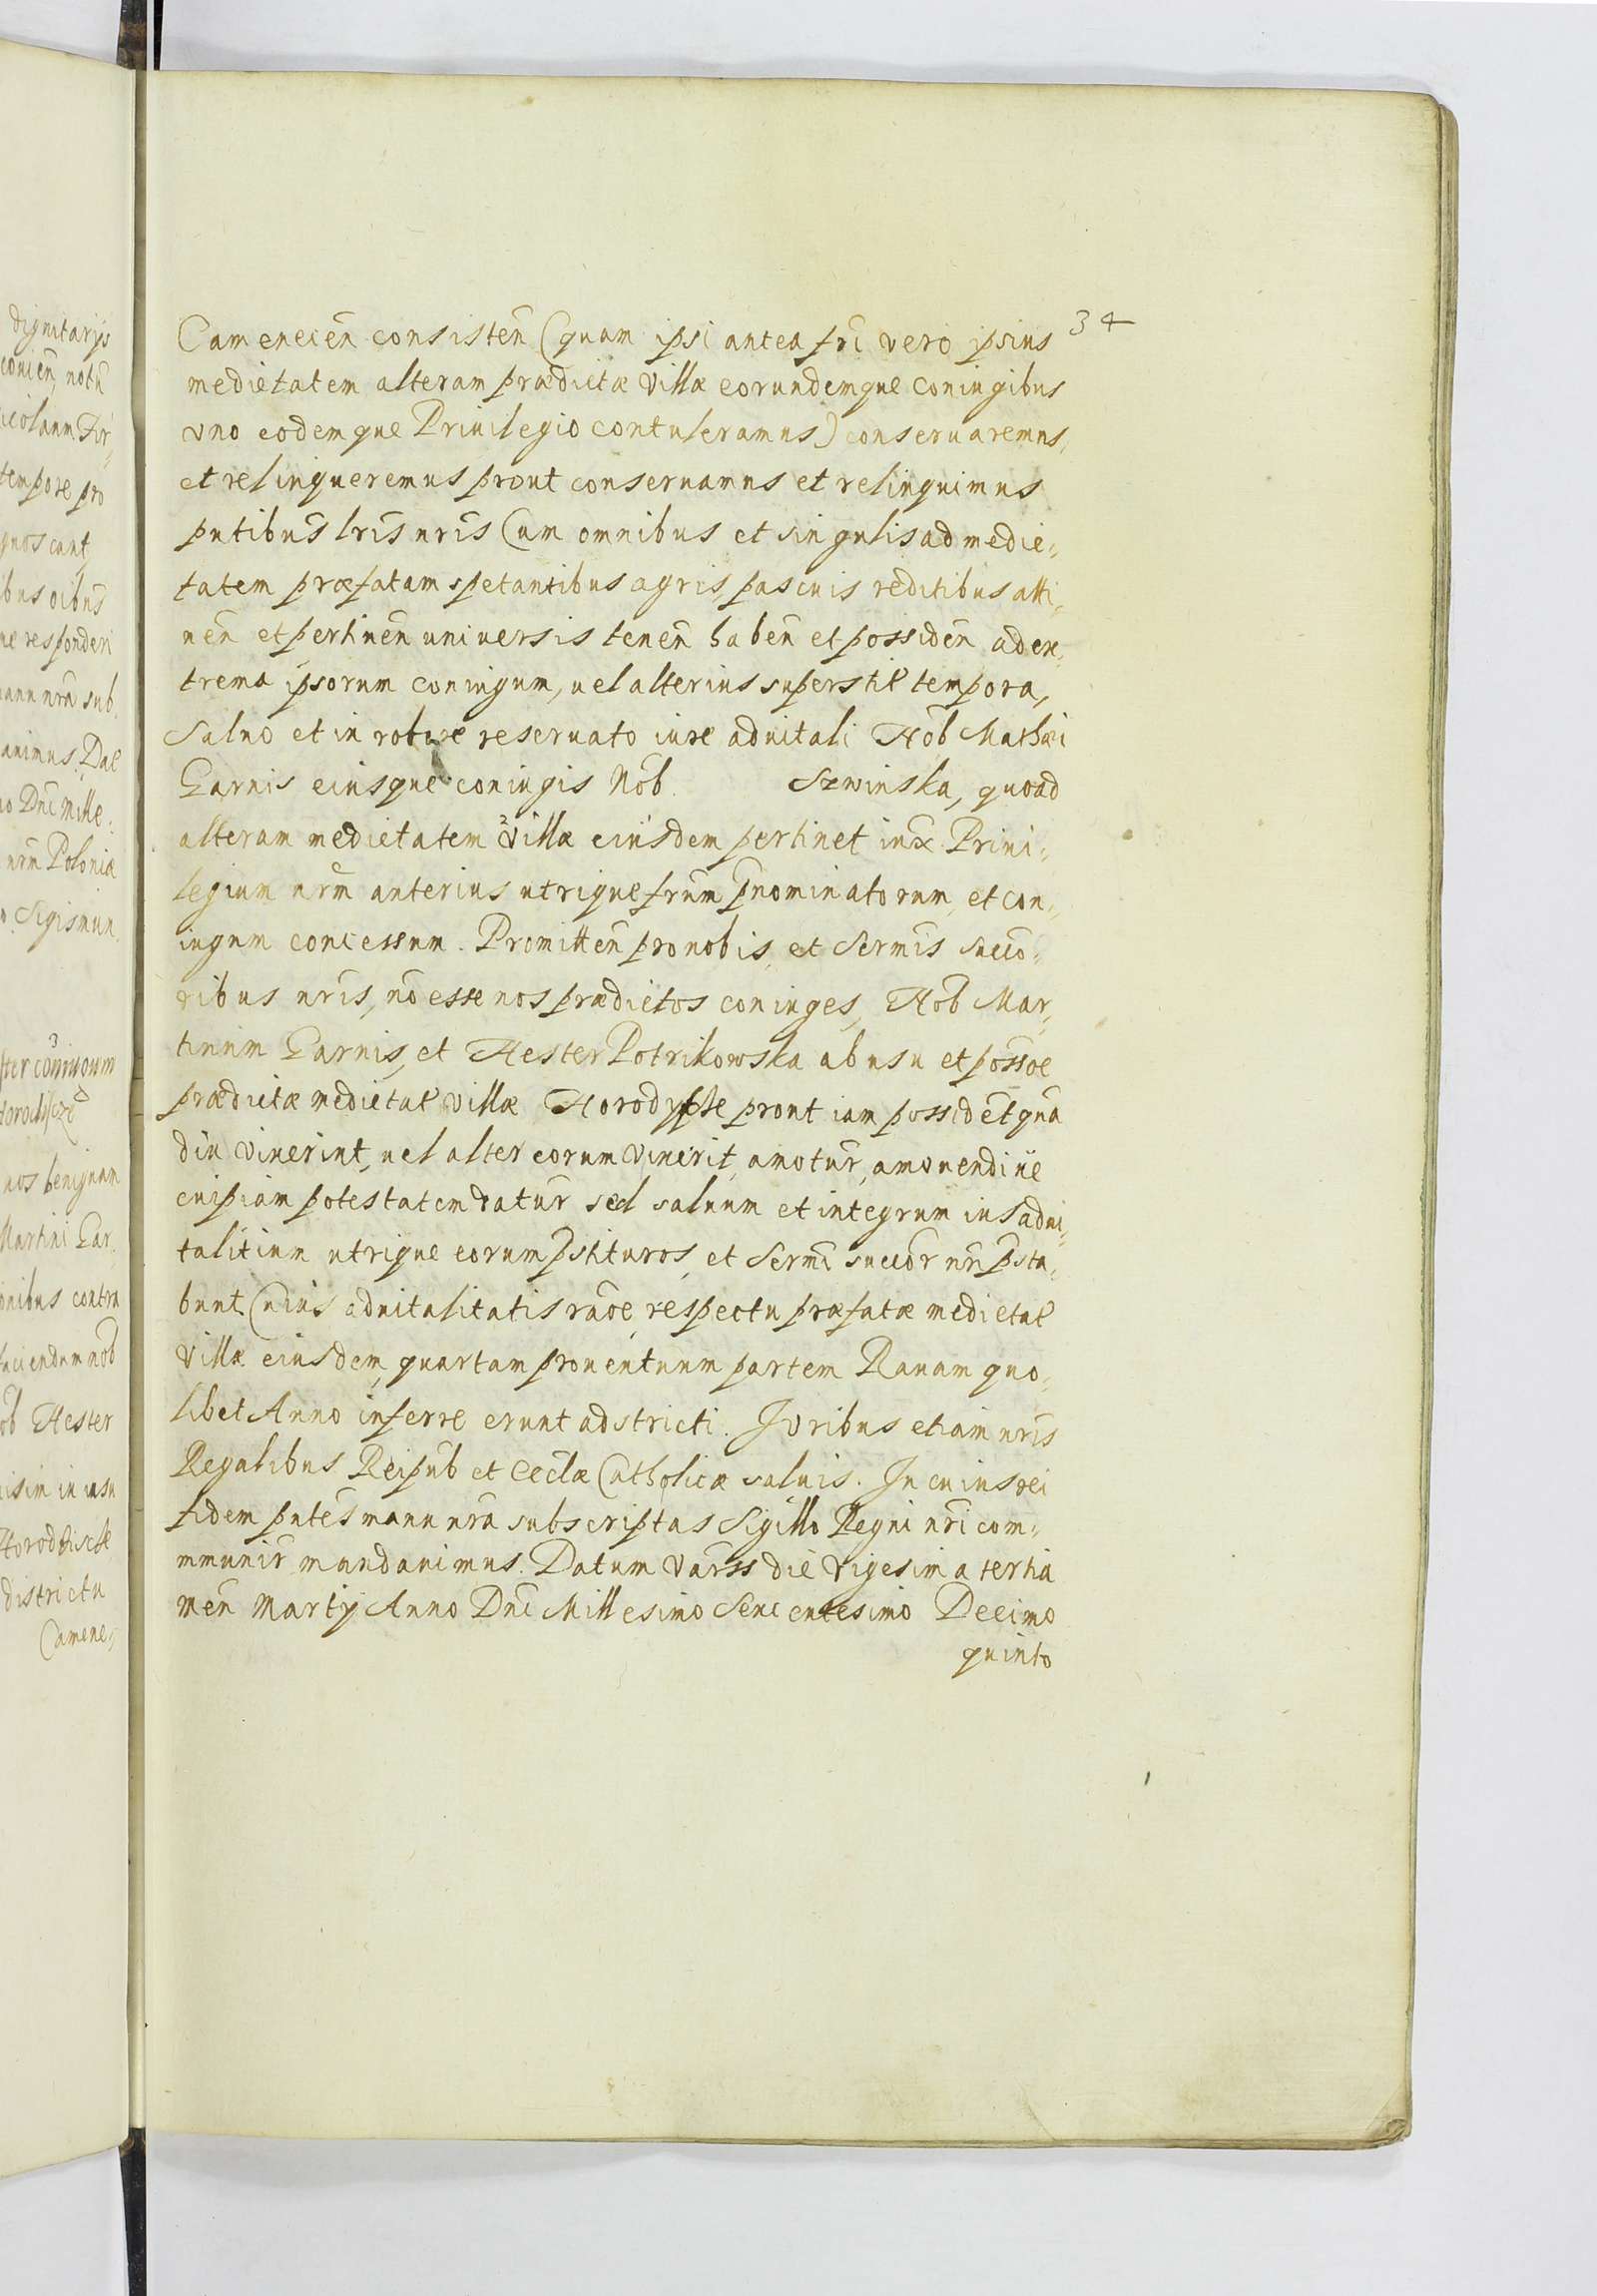 34
Camenecen̄ consisten̄ (quam ipsi antea fr̄i vero ipsius
medietatem alteram prædictæ Villæ eorundemque coniugibus
vno eodemque Priuilegio contuleramus) conseruaremus,
et relinqueremus prout conseruamus et relinquimus
pntibus̄ lr̄is nr̄is Cum omnibus et singulis ad medie„
tatem præfatam spetantibus agris, pascuis reditibus atti„
nen̄ et pertinen̄ uniuersis tenen̄ haben̄ et possiden̄ ad ex„
trema ipsorum coniugum, uel alterius superstit tempora,
Saluo et in robore reseruato iure aduitali Nob Mathæi
Garnis eiusque coniugis Nob. Szwinska, quoad
alteram medietatem Villæ eiusdem pertinet iux̄ Priui„
legium nr̄m anterius utrique fr̄um p̄nominatorum, et con„
iugum concessum. Promitten̄ pro nobis, et Serm̄is Succo„
ribus nr̄is, nō esse nos prædictos coniuges, Nob Mar„
tinum Garnis, et Hester Potrikowska ab usu et pos̄soe
prædictæ medietat villæ Horodyszcze prout iam possidēt quā
diu vixerint, uel alter eorum vixerit, amotur̄, amouendiue
cuipiam potestatem datur̄ sed saluum et integrum ius adui„
talitium utrique eorum p̄stituros, et Serm̄i succor̄ nr̄i p̄sta„
bunt. Cuius aduitalitatis raōe, respectu præfatæ medietat
Villæ eiusdem, quartam prouentuum partem Rauam quo„
libet Anno inferre erunt adstricti. Juribus etiam nr̄is
Regalibus Reipub et Eccl̄æ Catholicæ saluis. In cuius rei
fidem pntes̄ manu nr̄a subscriptas Sigillo Regni nr̄i com„
mmunir̄ mandauimus. Datum Vars̄s die vigesima tertia
Men̄ Martij Anno Dn̄i Millesimo Sexcentesimo Decimo
quinto